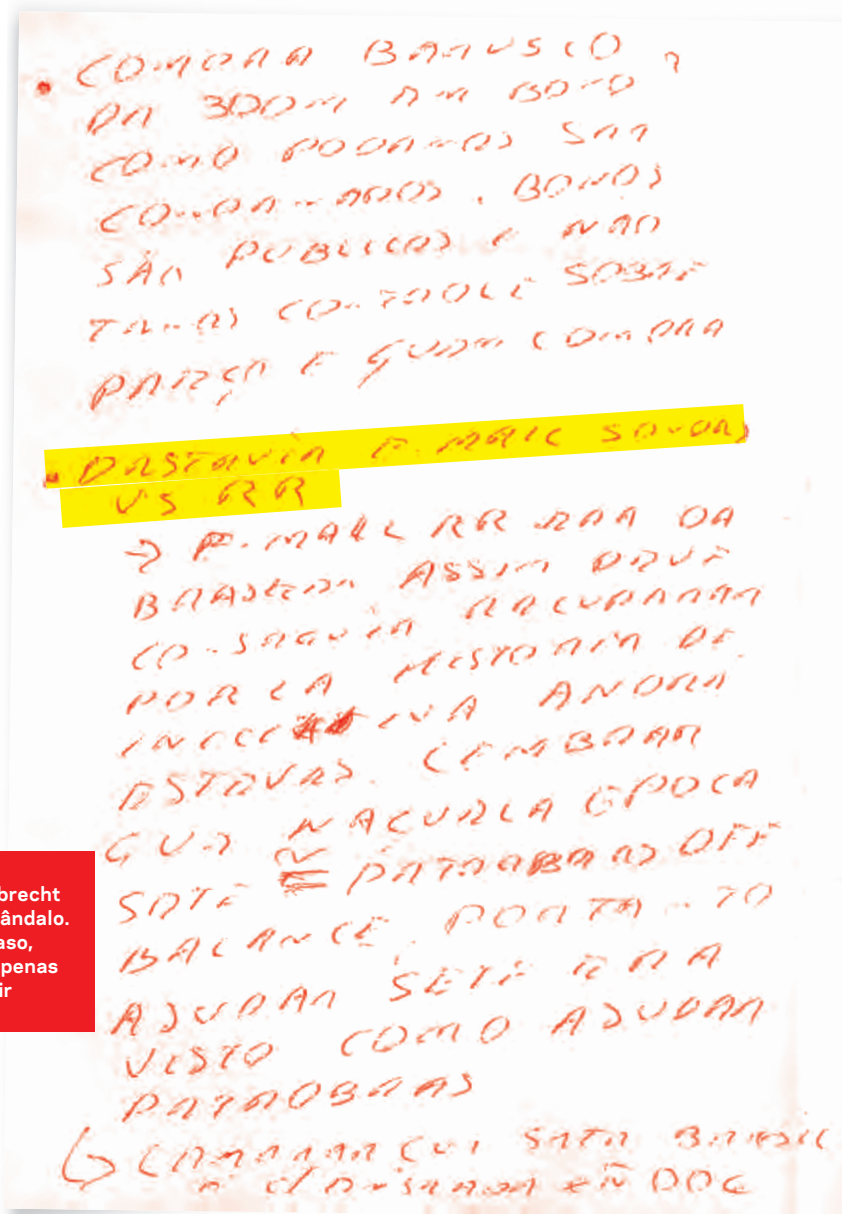 • COMPRA BARUSCO,
DA 300M EM BONO
COMO PODEMOS SER
CONDENADOS. BONOS
SÃO PUBLICOS E NÃO
TEMOS CONTROLE SOBRE
PREÇO E QUEM COMPRA
• DESTRUIR E.MAIL SONDAS
VS RR
→ E.MAIL RR ERA DA
BRASKEM ASSIM DEVE
CONSEGUIR RECUPERAR
POR LA HISTORIA DE
INICIATIVA ANDRE
ESTEVES. LEMBRAR
QUE NAQUELA EPOCA
SETE = PETROBRAS OFF
BALANCE, PORTANTO
AJUDAR SETE ERA
VISTO COMO AJUDAR
PETROBRAS
↳ LEMBRAR QUE SETE BRASIL
DOC
brecht
ândalo.
aso,
penas
ir